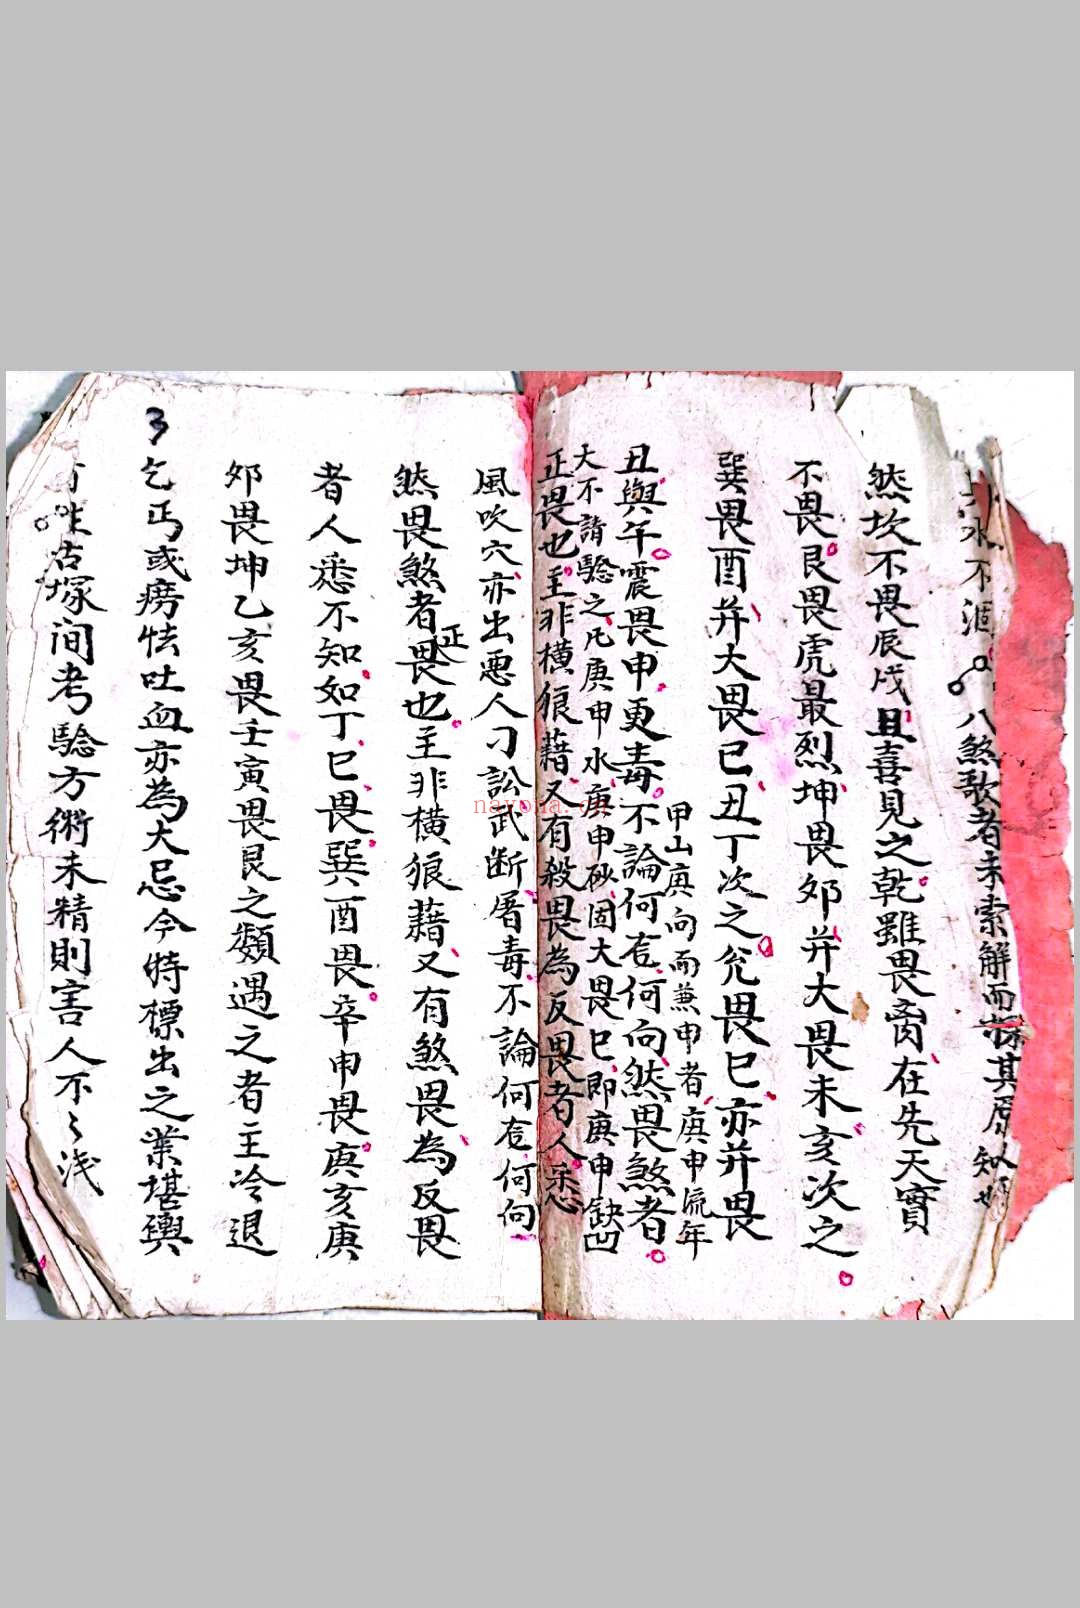 水不涸 八煞歌者未索解而探其原知
然坎不畏辰戌且喜見之乾雖畏离在先天實
不畏艮畏虎最烈坤畏夘并大畏未亥次之
巽畏酉并大畏巳丑丁次之兊畏巳亦并畏
甲山庚向而兼申者庚申流年
丑與午震畏申更毒不論何龙何向然畏煞者
大不請驗之凡庚申水庚申砂固大畏巳即庚申缺凹
正畏也主非橫狼藉又有殺畏為反畏者人悉
風吹穴亦出惡人刁訟武断屠毒不論何龙何向
然畏煞者正畏也主非橫狼藉又有煞畏為反畏
者人悉不知如丁巳畏巽酉畏辛申畏庚亥庚
夘畏坤乙亥畏壬寅畏艮之類遇之者主冷退
乞丐或癆怯吐血亦為大忌今時標出之業堪輿
古塚间考驗方術未精則害人不〻浅
nayona.cn